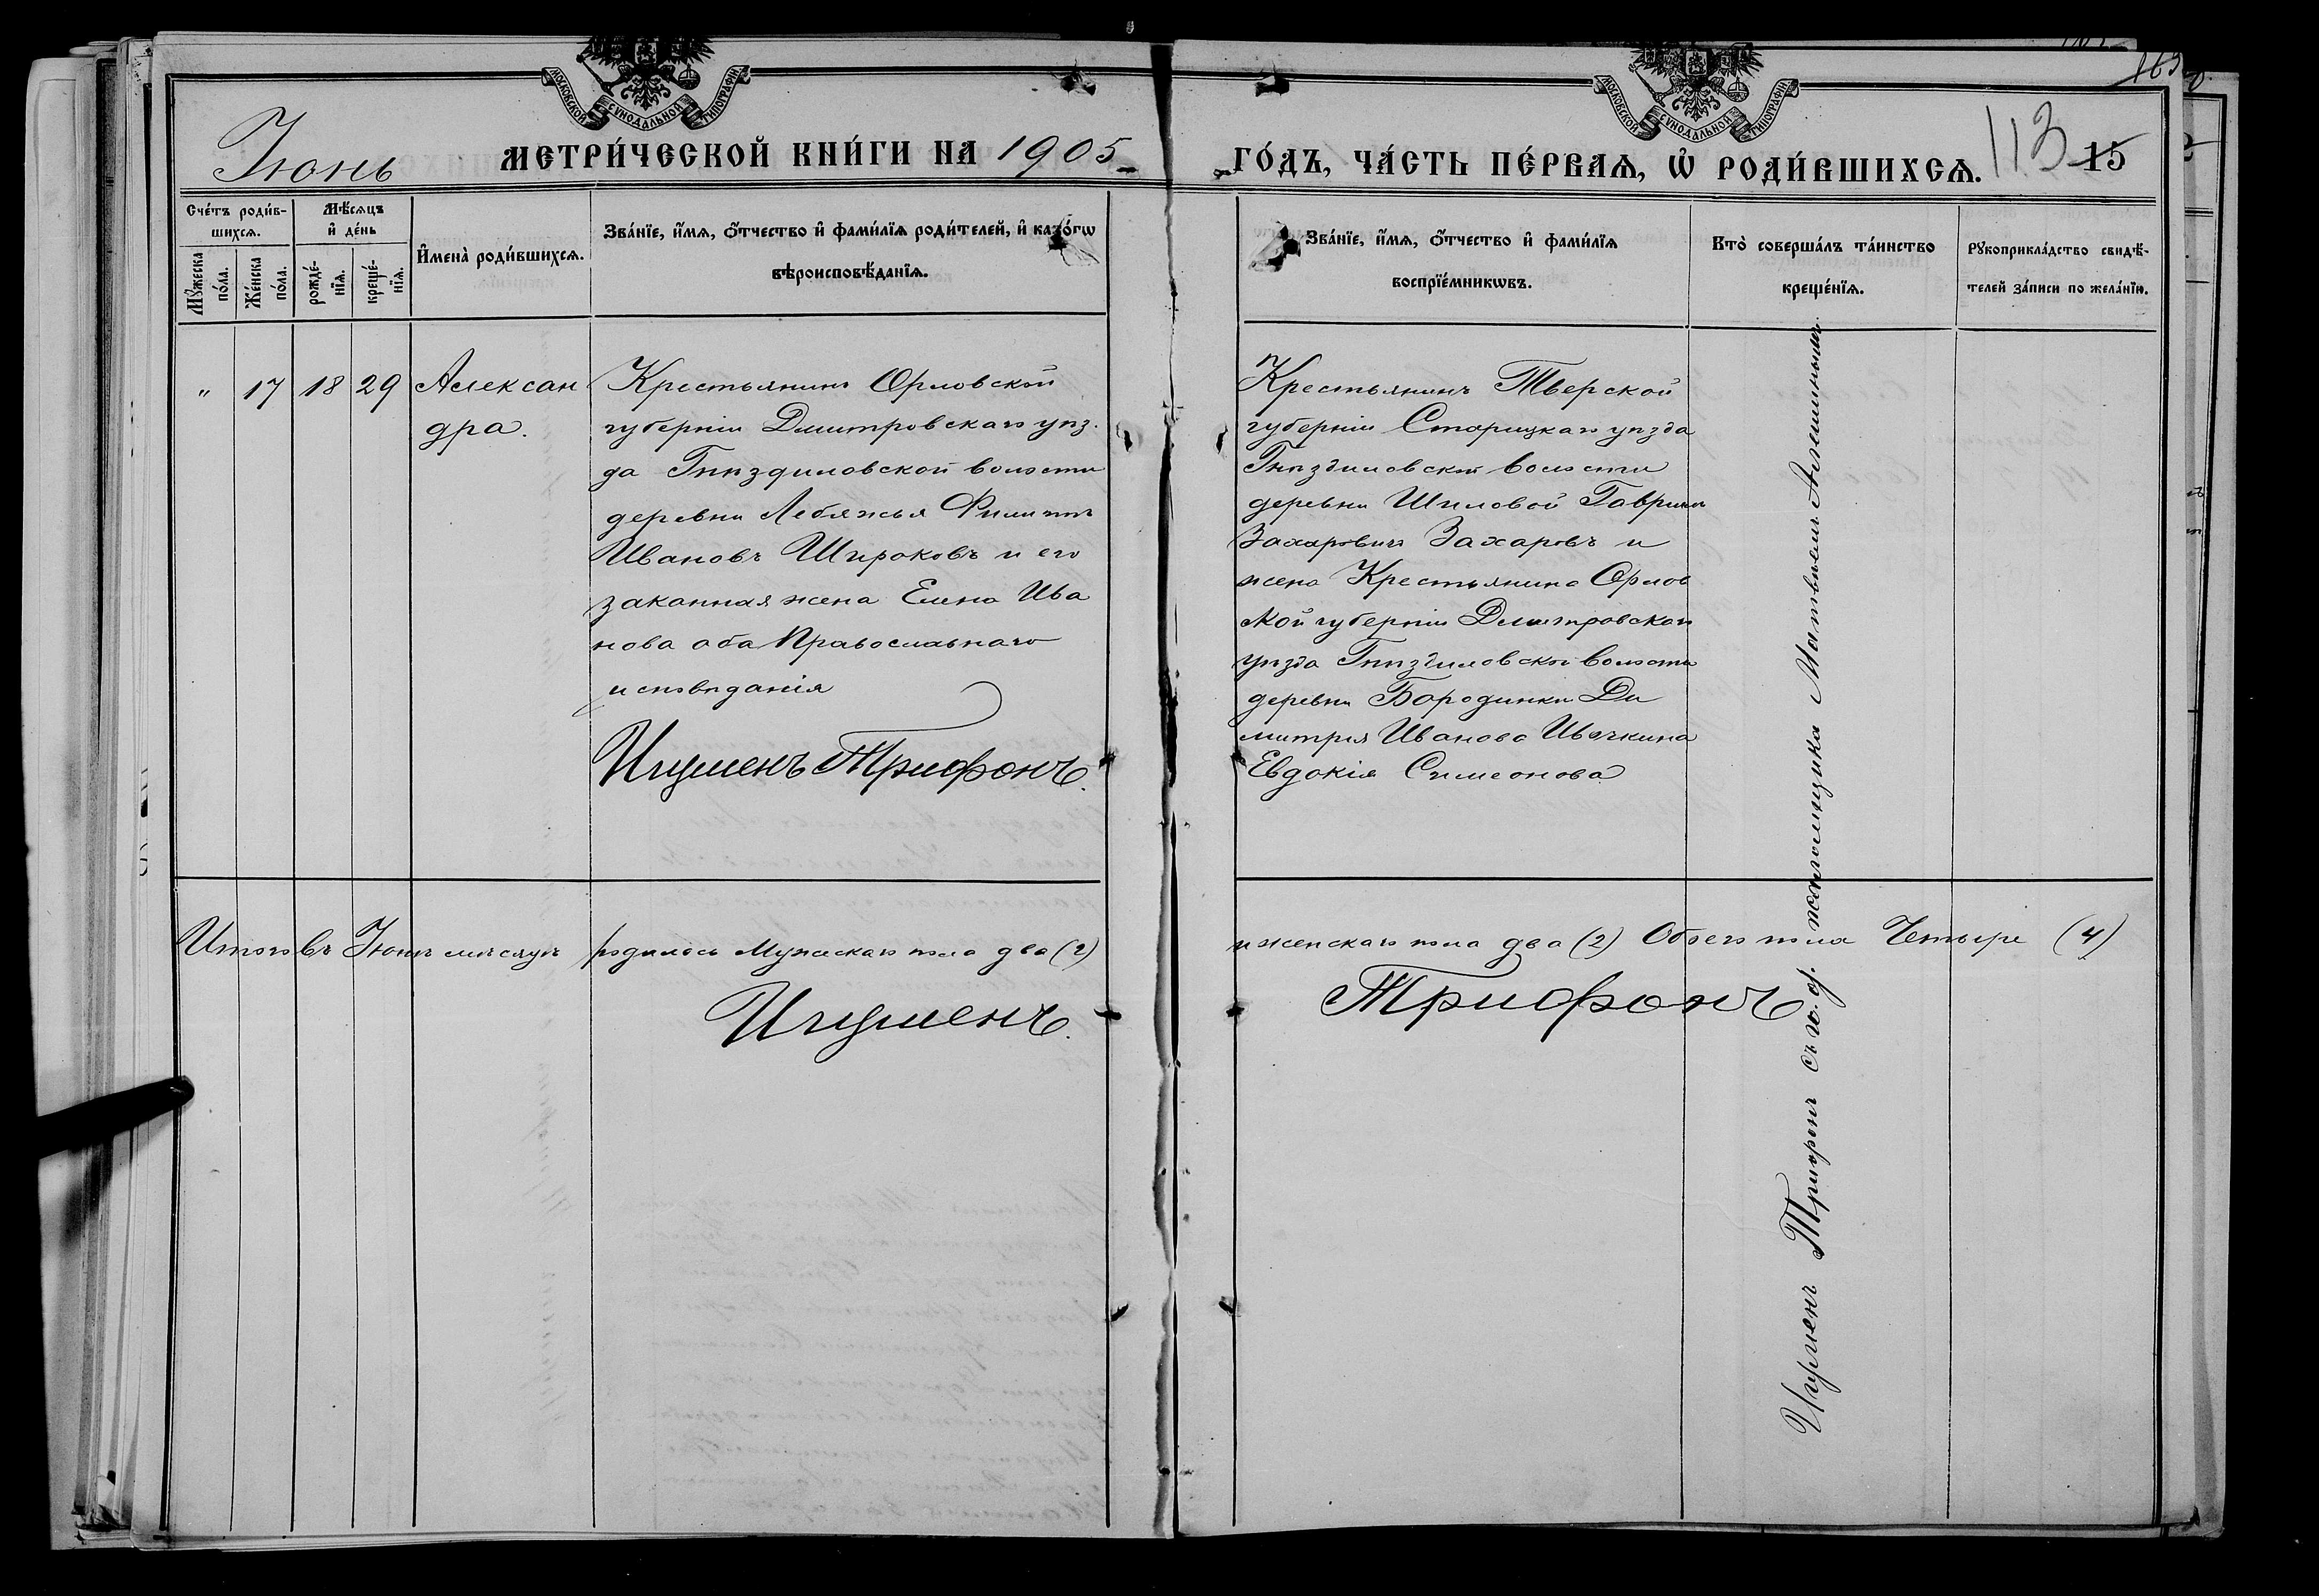 МОСКОВСКОЙ СѴНОДАЛЬНОЙ ТИПОГРАФІИ
МОСКОВСКОЙ СѴНОДАЛЬНОЙ ТИПОГРАФІИ
Июнь
МЕТРИ́ЧЕСКОЙ КНИ́ГИ НА 1905
ГО́ДЪ, ЧА́СТЬ ПЕ́РВАѦ, Ѡ҆ РОДИ́ВШИХСѦ.
113 15
Счéтъ роди́в-
шихсѧ.
Мꙋ́жеска
по́ла.
Же́нска
по́ла.
Мѣ́сѧцъ
и҆ де́нь
рожде́-
нїѧ.
креще́-
нїѧ.
И҆мена̀ роди́вшихсѧ.
Зва́нїе, и҆́мѧ, ѻ҆́тчество и҆ фами́лїѧ роди́телей, и҆ како́гѡ
вѣроисповѣ́данїѧ.
Зва́нїе, и҆́мѧ, ѻ҆́тчество и҆ фами́лїѧ
воспрїе́мникѡвъ.
Кто̀ соверша́лъ та́инство
креще́нїѧ.
Рꙋкоприкла́дство свидѣ́-
телей за́писи по жела́нїю.
" 17 18 29
Алексан
дра.
Крестьянинъ Орловской
губерніи Дмитровскаго уѣз.
да Гнѣздиловской волости
деревни Лебяжья Филиппъ
Ивановъ Широковъ и его
законная жена Елена Ива
нова оба Православнаго
исповѣданія
Игуменъ Трифонъ.
Крестьянинъ Тверской
губерніи Старицкаго уѣзда
Гнѣздиловской волости
деревни Шиловой Гавріилъ
Захаровичъ Захаровъ и
жена Крестьянина Орлов
ской губерніи Дмитровскаго
уѣзда Гнѣздиловской волости
деревни Бородинки Ди
митрія Иванова Ивочкина
Евдокія Симеонова
Игуменъ Трифонъ съ и. д. псаломщика Матвѣемъ Алешинымъ.
Итого въ Июнѣ мѣсяцѣ родилось Мужскаго пола два (2)
и женскаго пола два (2) Обоего пола Четыре (4)
Игуменъ
Трифонъ